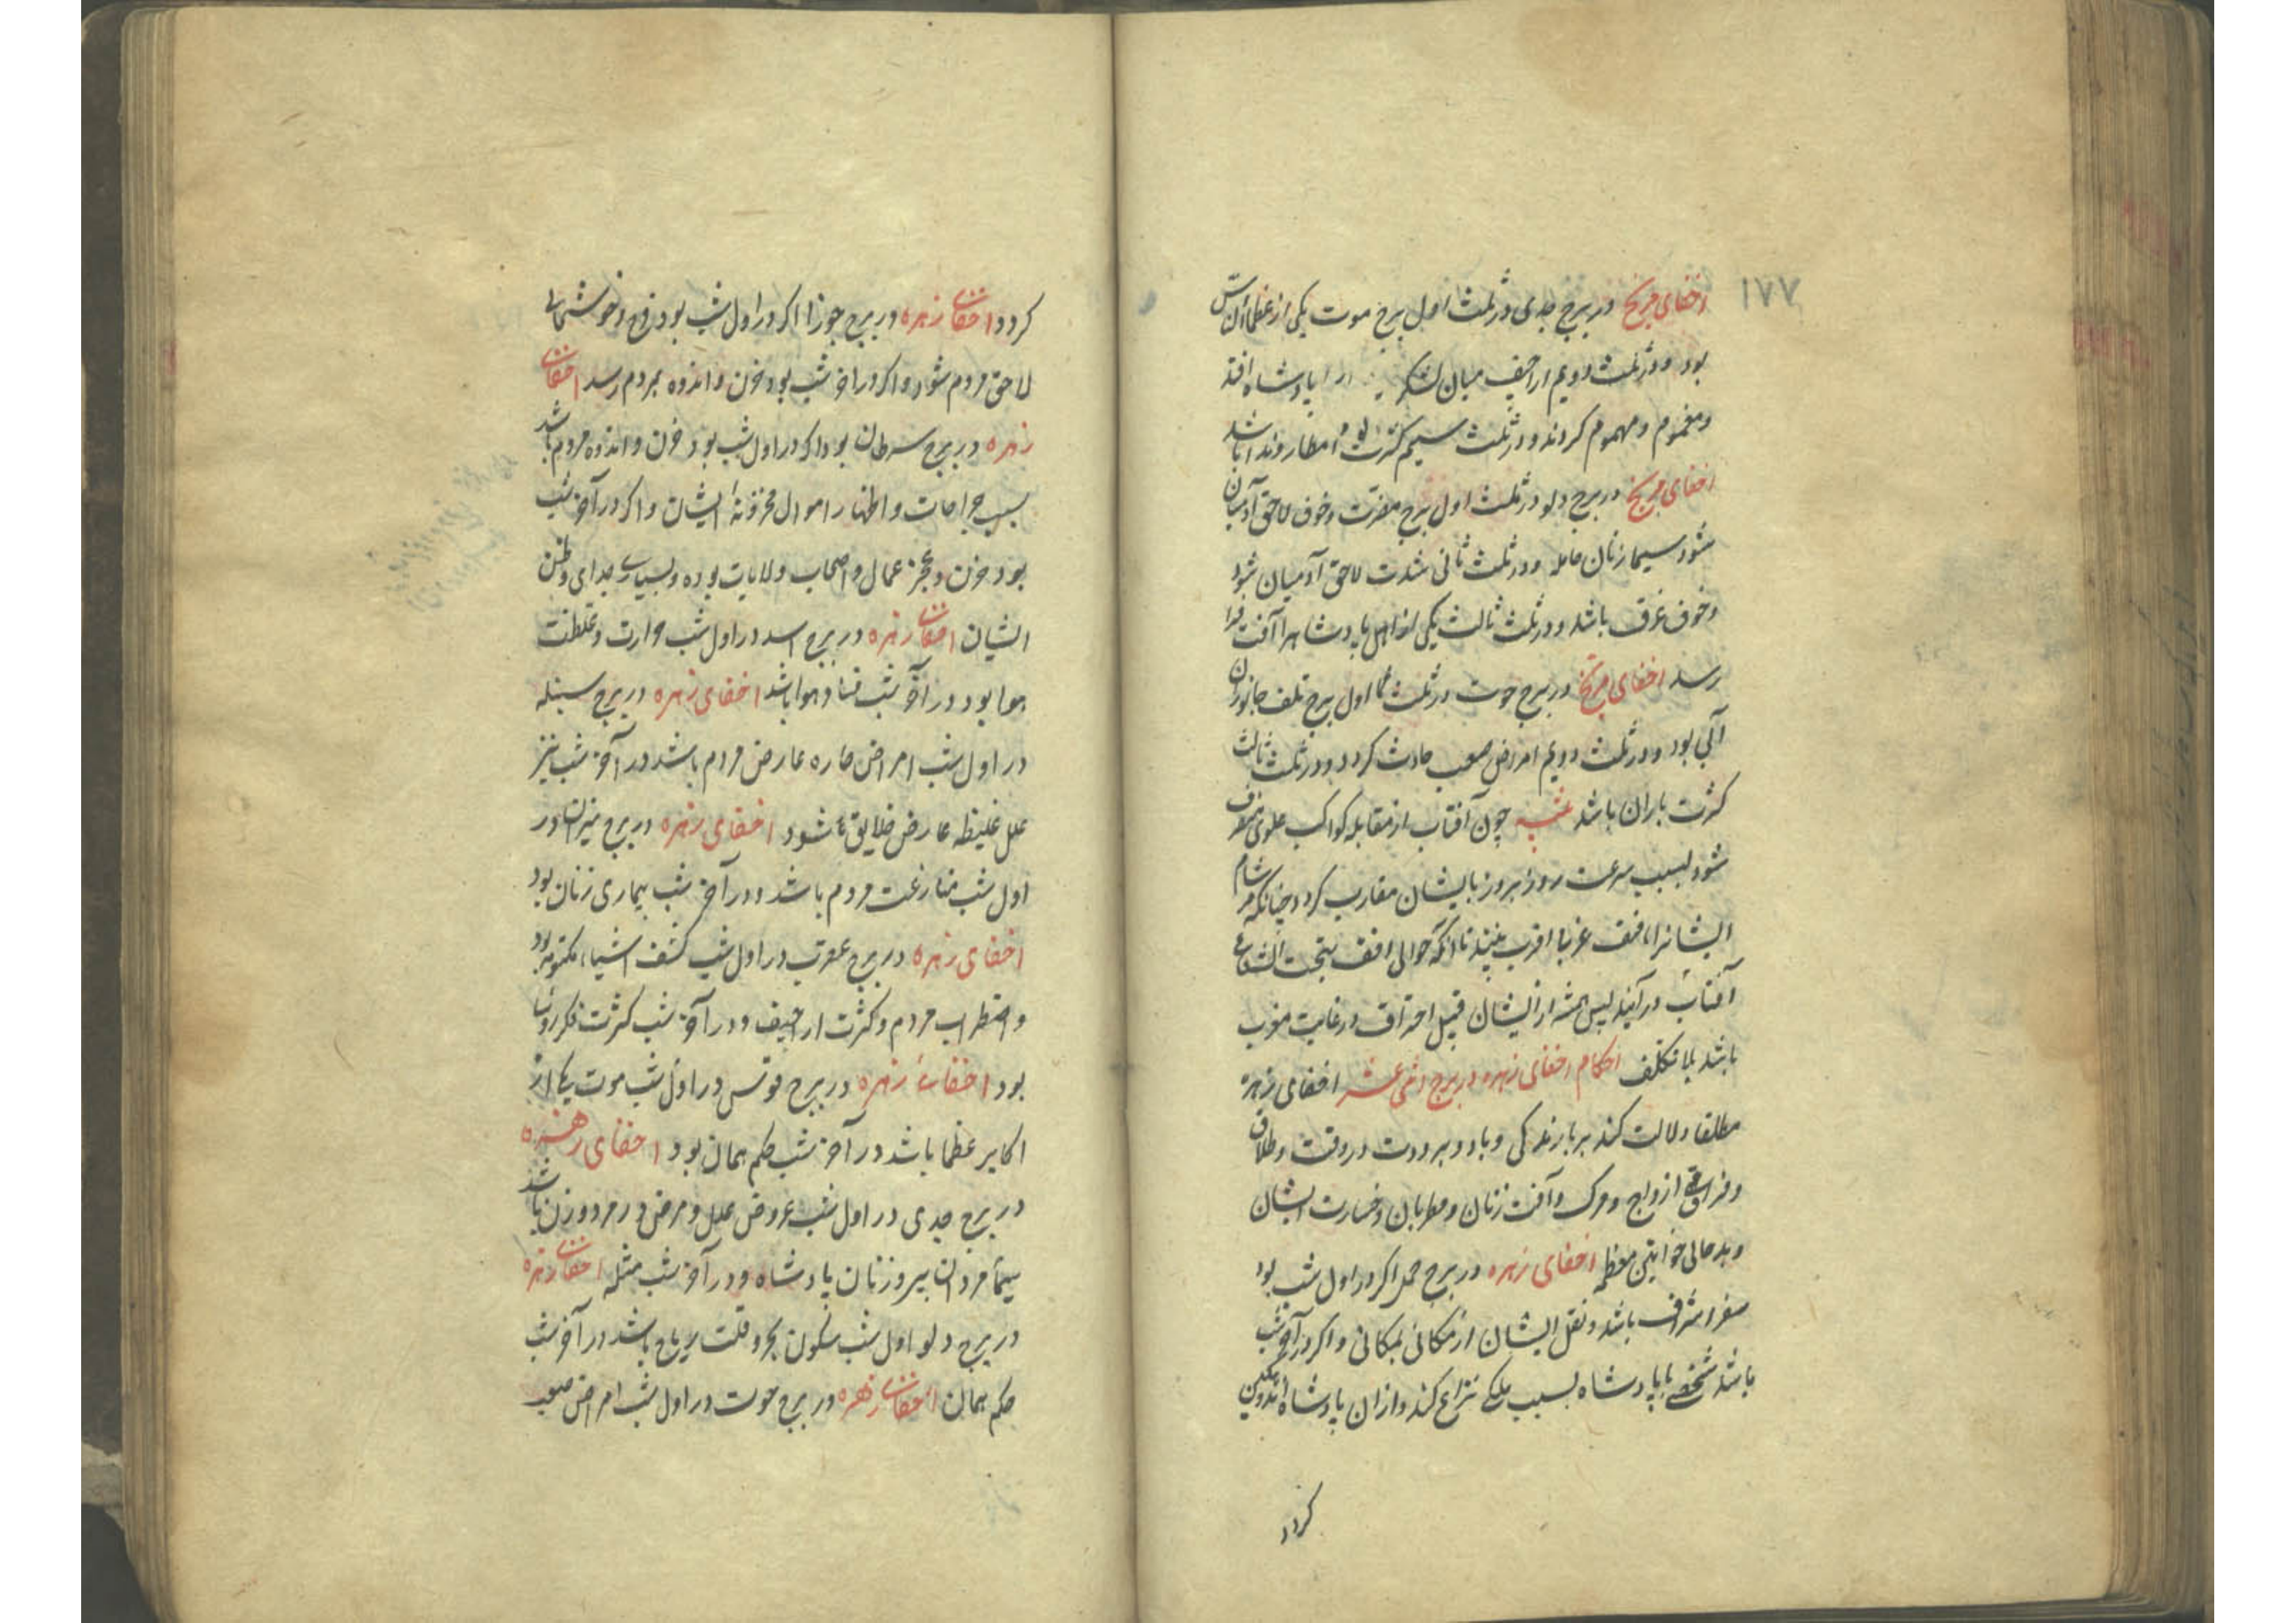 ١٧٧
اخفای مریخ در برج جدی در ثلث اول برج موت یکی از عظما آن
بود و در ثلث دویم اراجیف میان لشکر پادشاه افتد
و مغموم و مهموم کردند و در ثلث سیم کثرت امطار و باشد
اخفای مریخ در برج دلو در ثلث اول برج مضرت و خوف لاحق آدمیان
شود سیما زنان حامله و در ثلث ثانی شدت لاحق آدمیان شود
و خوف غرق باشد و در ثلث ثالث یکی از اهل پادشاه را آفت
رسد اخفای مریخ در برج حوت در ثلث اول برج تلف جانوران
آبی بود و در ثلث دویم امراض صعب حادث کردد و در ثلث ثالث
کثرت باران باشد چون آفتاب از مقابله کواکب علوی منصرف
شود بسبب سرعت روز بروز بایشان مقارب کردد چنانکه هر شام
ایشانرا بافق غربی اقرب بینند تا آنکه حوالی افق بتحت الشعاع
آفتاب در آیند پس از ایشان قبیل احتراق در غایت مغرب
باشد بلا تکلف احکام اخفای زهره در برج اثنی عشر اخفای زهره
مطلقا دلالت کند بر بارندکی و باد و برودت در وقت و طلاق
و فراق ازواج و مرک و آفت زنان و مطربان و خسارت ایشان
و بد حالی خواتین معظمه اخفای زهره در برج حمل اکر در اول شب بود
سفر اشراف باشد و نقل ایشان از مکانی بمکانی و اکر در آخر شب
باشد شخصی با پادشاه بسبب ملکی نزاع کند و از آن پادشاه اندوهکین
کردد
کردد اخفای زهره در برج جوزا اکر در اول شب بود فرح و خوشحالی
لاحق مردم شود و اکر در آخر شب بود حزن و اندوه بمردم رسد اخفای
زهره در برج سرطان بود اکر در اول شب بود حزن و اندوه مردم باشد
بسبب جراحات و اظهار اموال مخزونه ایشان و اکر در آخر شب
بود حزن و عجز عمال و اصحاب ولایات بوده و بسیاری جدای وطن
ایشان اخفای زهره در برج اسد در اول شب حرارت و غلظت
هوا بود در آخر شب فساد هوا باشد اخفای زهره در برج سنبله
در اول شب امراض حاره عارض مردم باشد در آخر شب نیز
علل غلیظه عارض خلایق شود اخفای زهره در برج میزان در
اول شب منازعت مردم باشد و در آخر شب بیماری زنان بود
اخفای زهره در برج عقرب در اول شب کشف اشیاء مکتومه بود
و اضطراب مردم و کثرت اراجیف و در آخر شب کثرت مکر
بود اخفای زهره در برج قوس در اول شب موت یکی از
اکابر عظما باشد در آخر شب حکم همان بود اخفای زهره
در برج جدی در اول شب عروض علل و مرض در مرد و زن باشد
سیما مردان پیر و زنان پادشاه و در آخر شب مثله اخفای زهره
در برج دلو اول شب سکون بحر و قلت ریاح باشد در آخر شب
حکم همان اخفای زهره در برج حوت در اول شب امراض صعب